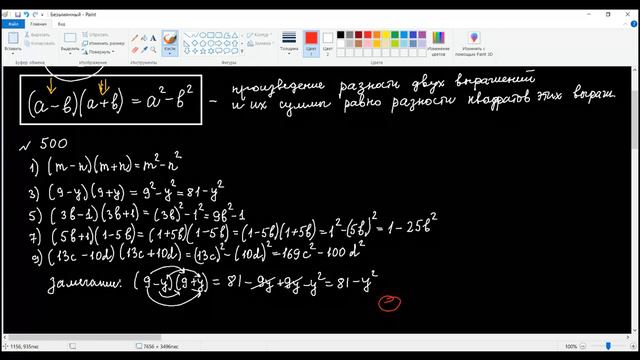 Безымянный - Paint
Файл Главная Вид
Вставить Выделить Обрезать Изменить размер Повернуть Кисти Контур Заливка Толщина Цвет 1 Цвет 2 Изменение цветов Изменить с помощью Paint 3D
Буфер обмена Изображение Инструменты Фигуры Цвета
(a-b)(a+b) = a²-b² - произведение разности двух выражений
и их суммы равно разности квадратов этих выраж.
№ 500
1) (m-n)(m+n)=m²-n²
3) (9-y)(9+y) = 9²-y²=81-y²
5) (3b-1)(3b+1)=(3b)²-1²=9b²-1
7) (5b+1)(1-5b)=(1+5b)(1-5b)=(1-5b)(1+5b)=1²-(5b)²=1-25b²
9) (13c-10d)(13c+10d)=(13c)²-(10d)²=169c²-100d²
Замечание: (9-y)(9+y) = 81-9y+9y-y²=81-y²
1156, 935пкс 7656 × 3496пкс 100%